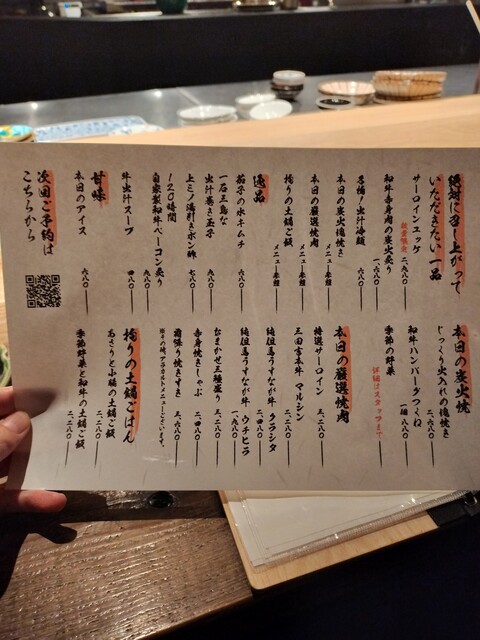 絶対に召し上がって
いただきたい一品
サーロインユッケ
数量限定 二、九八〇
和牛赤身肉の炭火炙り
一、六八〇
名物！出汁冷麺
六八〇
本日の炭火塊焼き
メニュー参照
本日の厳選焼肉
メニュー参照
拘りの土鍋ご飯
メニュー参照
逸品
茄子の水キムチ
六八〇
一石三鳥な
出汁巻き玉子
九八〇
上ミノ湯引きポン酢
七八〇
120時間
自家製和牛ベーコン炙り
九八〇
牛出汁スープ
四八〇
甘味
本日のアイス
六八〇
次回ご予約は
こちらから
本日の炭火焼
じっくり火入れの塊焼き
二、六八〇
和牛ハンバーグつくね
一個 八八〇
季節の野菜
詳細はスタッフまで
本日の厳選焼肉
特選サーロイン
三、二八〇
三田吉本牛 マルシン
二、二八〇
純但馬うすなが牛 クラシタ
二、四八〇
純但馬うすなが牛 ウチヒラ
一、九八〇
なまかせ三種盛り
三、二八〇
赤身焼きしゃぶ
二、四八〇
霜降り焼きすき
三、六八〇
拘りの土鍋ごはん
あさりと小鯛の土鍋ご飯
二、二八〇
季節野菜と和牛の土鍋ご飯
二、二八〇